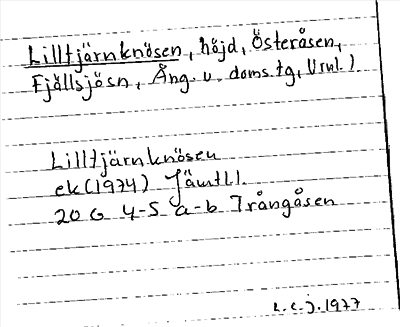 Lilltjärnknösen, höjd, Österåsen,
Fjällsjösn, Ång. v. doms.tg, Vrnl.)
Lilltjärnknösen
ek (1974) Jämtl.
20 G 4-5 a-b Trångåsen
L.C.J. 1977